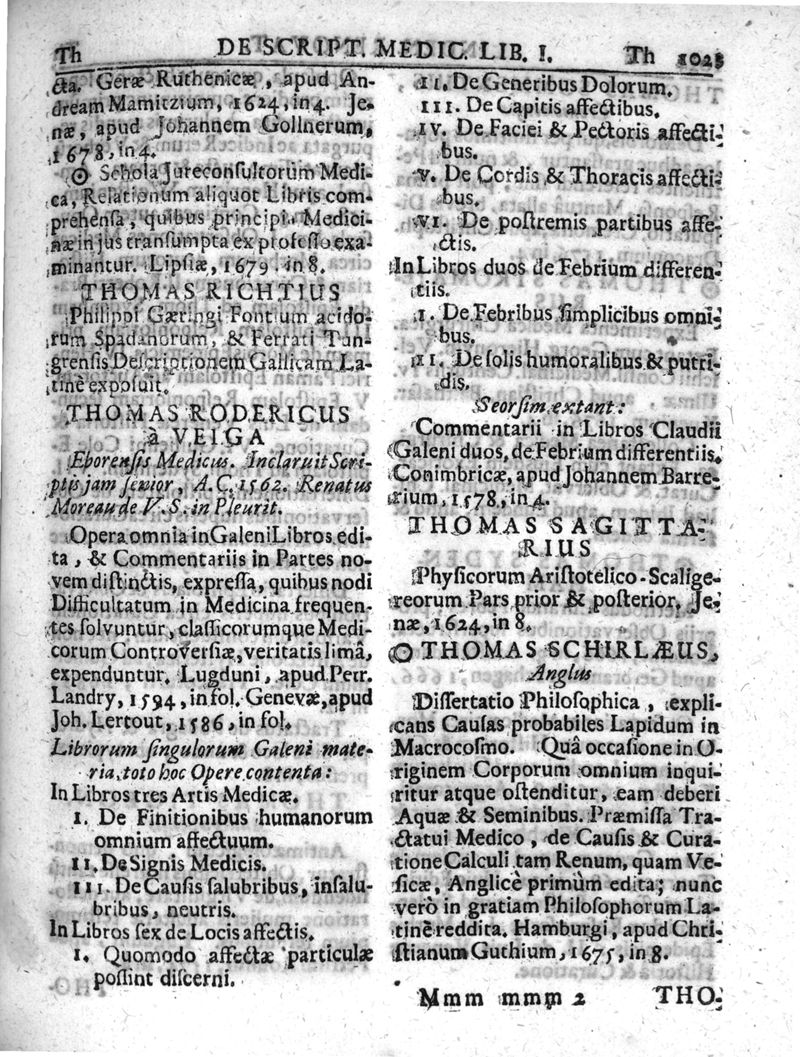 Th
DE SCRIPT. MEDIC. LIB. I.
Th 1023
cta. Geræ Ruthenicæ, apud An-
dream Mamitzium, 1624, in 4. Je-
næ, apud Johannem Gollnerum,
1678, in 4.
☉ Schola Jureconſultorum Medi-
ca, Relationum aliquot Libris com-
prehenſa, quibus principi. Medici-
næ in jus tranſumpta ex profeſſo exa-
minantur. Lipſiæ, 1679. in 8.
THOMAS RICHTIUS
Philippi Gæringi Fontium acido-
rum Spadanorum, & Ferrati Tun-
grenſis Deſcriptionem Gallicam La-
tinè expoſuit.
THOMAS RODERICUS
à VEIGA
Eborenſis Medicus. Inclaruit Scri-
ptis jam ſenior, A. C. 1562. Renatus
Moreau de V. S. in Pleurit.
Opera omnia in Galeni Libros edi-
ta, & Commentariis in Partes no-
vem diſtinctis, expreſſa, quibus nodi
Difficultatum in Medicina frequen-
tes ſolvuntur, claſſicorumque Medi-
corum Controverſiæ, veritatis limâ,
expenduntur. Lugduni, apud Petr.
Landry, 1594, in fol. Genevæ, apud
Joh. Lertout, 1586, in fol.
Librorum ſingulorum Galeni mate-
ria, toto hoc Opere contenta:
In Libros tres Artis Medicæ.
I. De Finitionibus humanorum
omnium affectuum.
II. De Signis Medicis.
III. De Cauſis ſalubribus, inſalu-
bribus, neutris.
In Libros ſex de Locis affectis.
I. Quomodo affectæ particulæ
poſſint diſcerni.
II. De Generibus Dolorum.
III. De Capitis affectibus.
IV. De Faciei & Pectoris affecti-
bus.
V. De Cordis & Thoracis affecti-
bus.
VI. De poſtremis partibus affe-
ctis.
In Libros duos de Febrium differen-
tiis.
I. De Febribus ſimplicibus omni-
bus.
II. De ſolis humoralibus & putri-
dis.
Seorſim extant:
Commentarii in Libros Claudii
Galeni duos, de Febrium differentiis.
Conimbricæ, apud Johannem Barre-
rium, 1578, in 4.
THOMAS SAGITTA-
RIUS
Phyſicorum Ariſtotelico-Scalige-
reorum Pars prior & poſterior. Je-
næ, 1624, in 8.
☉ THOMAS SCHIRLÆUS,
Anglus
Diſſertatio Philoſophica, expli-
cans Cauſas probabiles Lapidum in
Macrocoſmo. Quâ occaſione in O-
riginem Corporum omnium inqui-
ritur atque oſtenditur, eam deberi
Aquæ & Seminibus. Præmiſſa Tra-
ctatui Medico, de Cauſis & Cura-
tione Calculi tam Renum, quam Ve-
ſicæ, Anglicè primùm edita; nunc
verò in gratiam Philoſophorum La-
tinè reddita. Hamburgi, apud Chri-
ſtianum Guthium, 1675, in 8.
Mmm mmm 2
THO-